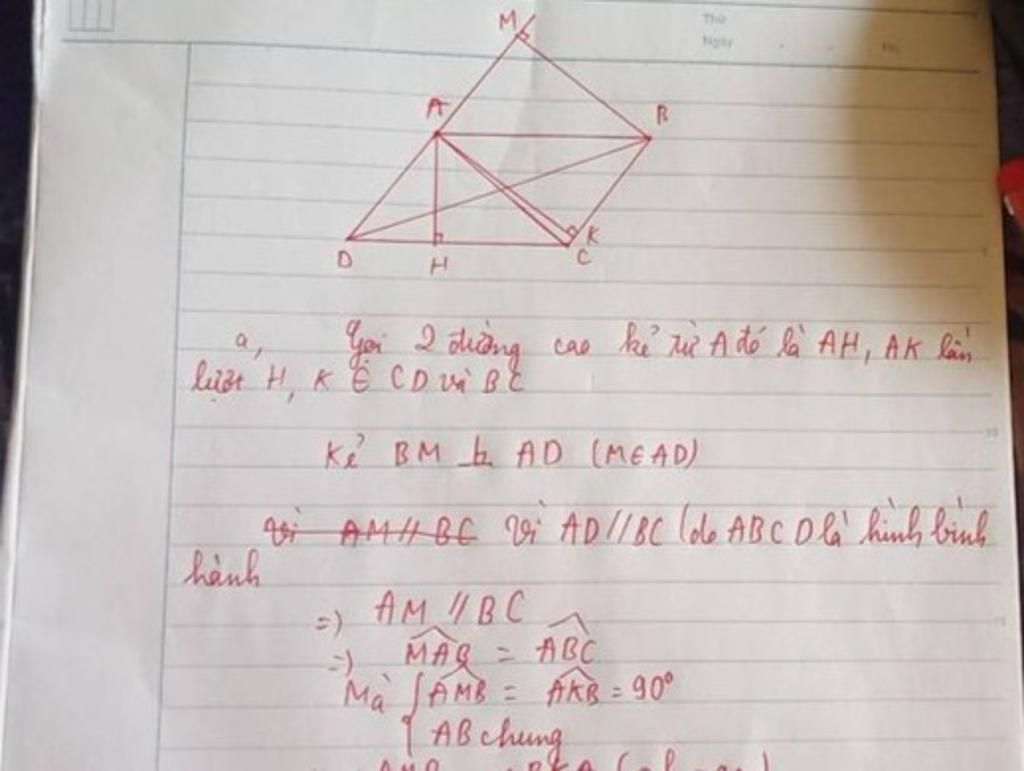 Thứ
Ngày
No
M
A
B
D
H
K
C
a, Gọi 2 đường cao kẻ từ A đó là AH, AK lần
lượt H, K ∈ CD và BC
Kẻ BM ⊥ AD (M∈AD)
Vì AM // BC Vì AD // BC (do ABCD là hình bình
hành
=) AM // BC
=) MAB = ABC
Mà { AMB = AKB = 90°
AB chung